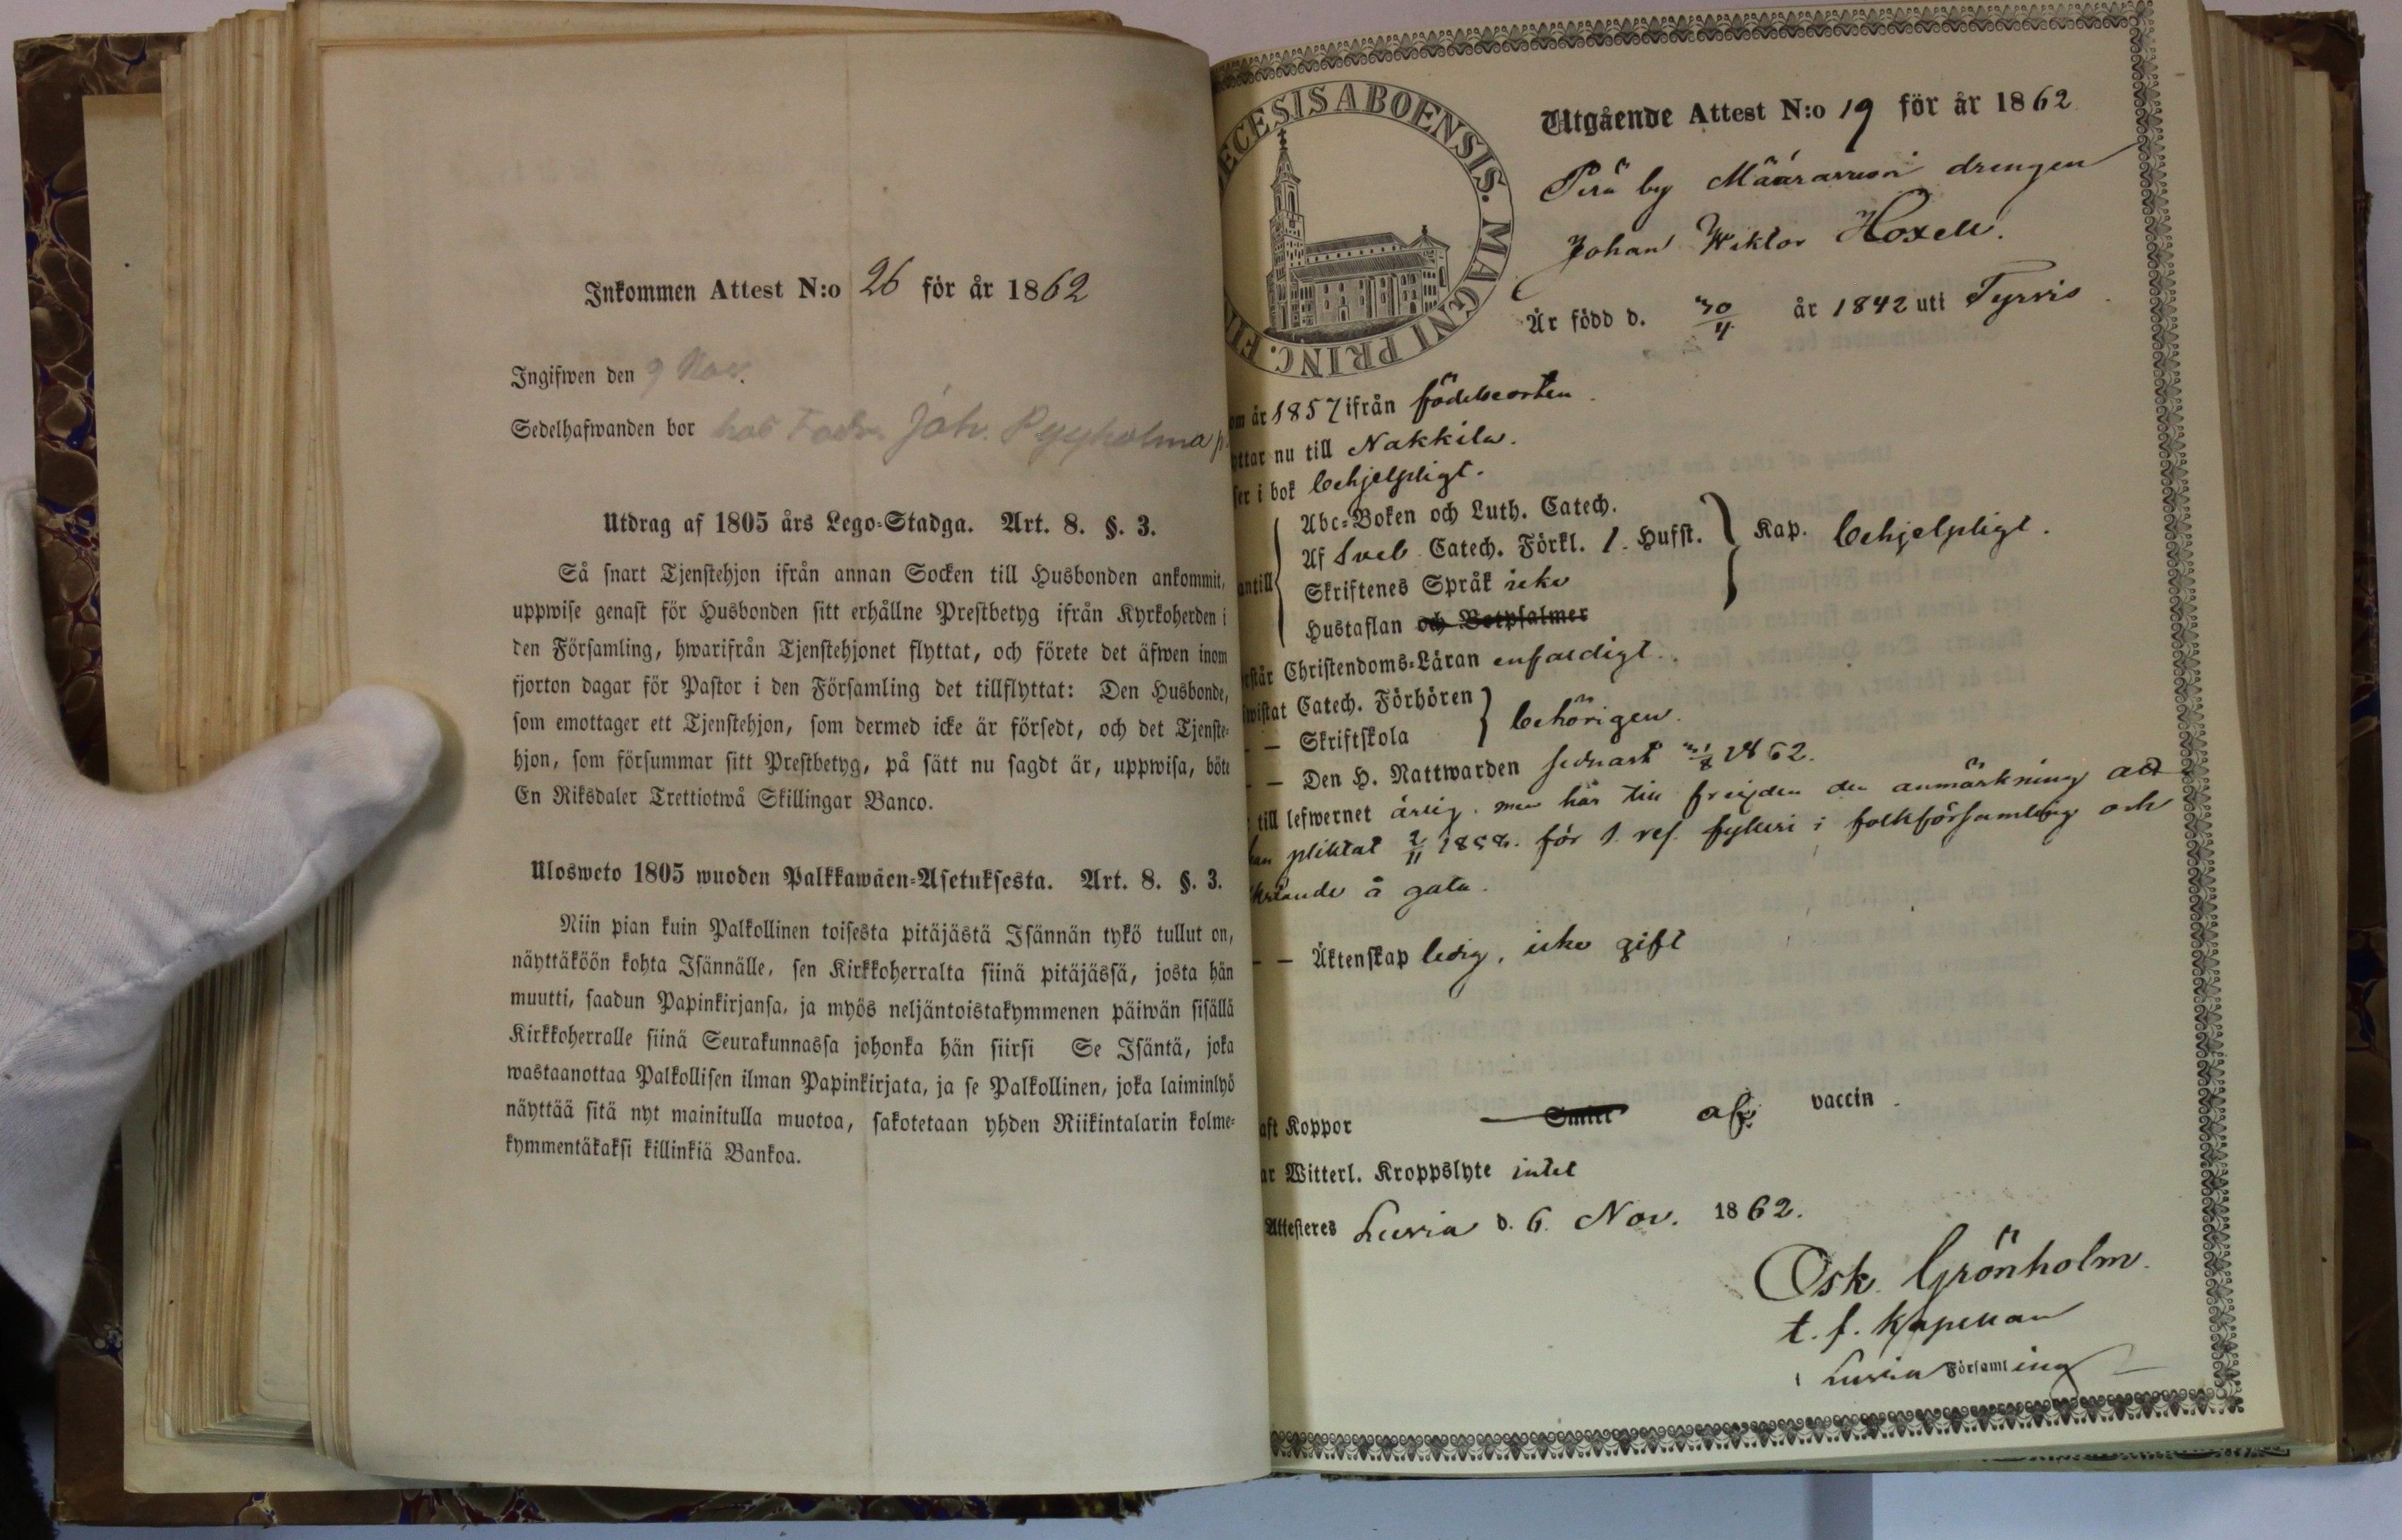 Inkommen Attest N:o 26 för år 1862
Ingifwen den 9 Nov.
Sedelhafwanden bor hos Joh. Pyyholma
Utdrag af 1805 års Lego-Stadga. Art. 8. §. 3.
Så snart Tjenstehjon ifrån annan Socken till Husbonden ankommit,
uppwise genast för Husbonden sitt erhållne Prestbetyg ifrån Kyrkoherden i
den Församling, hwarifrån Tjenstehjonet flyttat, och förete det äfwen inom
fjorton dagar för Pastor i den Församling det tillflyttat: Den Husbonde,
som emottager ett Tjenstehjon, som dermed icke är försedt, och det Tjenste-
hjon, som försummar sitt Prestbetyg, på sätt nu sagdt är, uppwisa, böte
En Riksdaler Trettiotwå Skillingar Banco.
Ulosweto 1805 wuoden Palkkawäen-Asetuksesta. Art. 8. §. 3.
Niin pian kuin Palkollinen toisesta pitäjästä Isännän tykö tullut on,
näyttäköön kohta Isännälle, sen Kirkkoherralta siinä pitäjässä, josta hän
muutti, saadun Papinkirjansa, ja myös neljäntoistakymmenen päiwän sisällä
Kirkkoherralle siinä Seurakunnassa johonka hän siirsi Se Isäntä, joka
wastaanottaa Palkollisen ilman Papinkirjata, ja se Palkollinen, joka laiminlyö
näyttää sitä nyt mainitulla muotoa, sakotetaan yhden Riikintalarin kolme-
kymmentäkaksi killinkiä Bankoa.
ECESIS ABOENSIS. MAGNI PRINC. FI
Utgående Attest N:o 19 för år 1862
by drengen
Johan Wiktor Hoxell.
Är född d. 30/4 år 1842 uti Tyrvis
om år 1857 ifrån födelseorten.
yttar nu till Nakkila.
ser i bok behjelpligt.
Abc-Boken och Luth. Catech.
antill Af Sveb. Catech. Förkl. 1. Hufst. Kap. behjelpligt.
Skriftenes Språk icke
Hustaflan och Botpsalmer
rstår Christendoms-Läran enfaldigt.
wistat Catech. Förhören
– – Skriftskola behörigen.
– – Den H. Nattwarden sednast 31/8 1862.
till lefwernet ärlig. men har till frejden den anmärkning att
han pliktat 2/11 1858. för 1. res. fylleri i folkförsamling och
å gata.
– – Äktenskap ledig, icke gift
aft Koppor Smitt af vaccin.
ar Witterl. Kroppslyte intet
Attesteres Luvia d. 6. Nov. 1862.
Osk. Grönholm.
t. f. Kapellan
i Luvia Församling